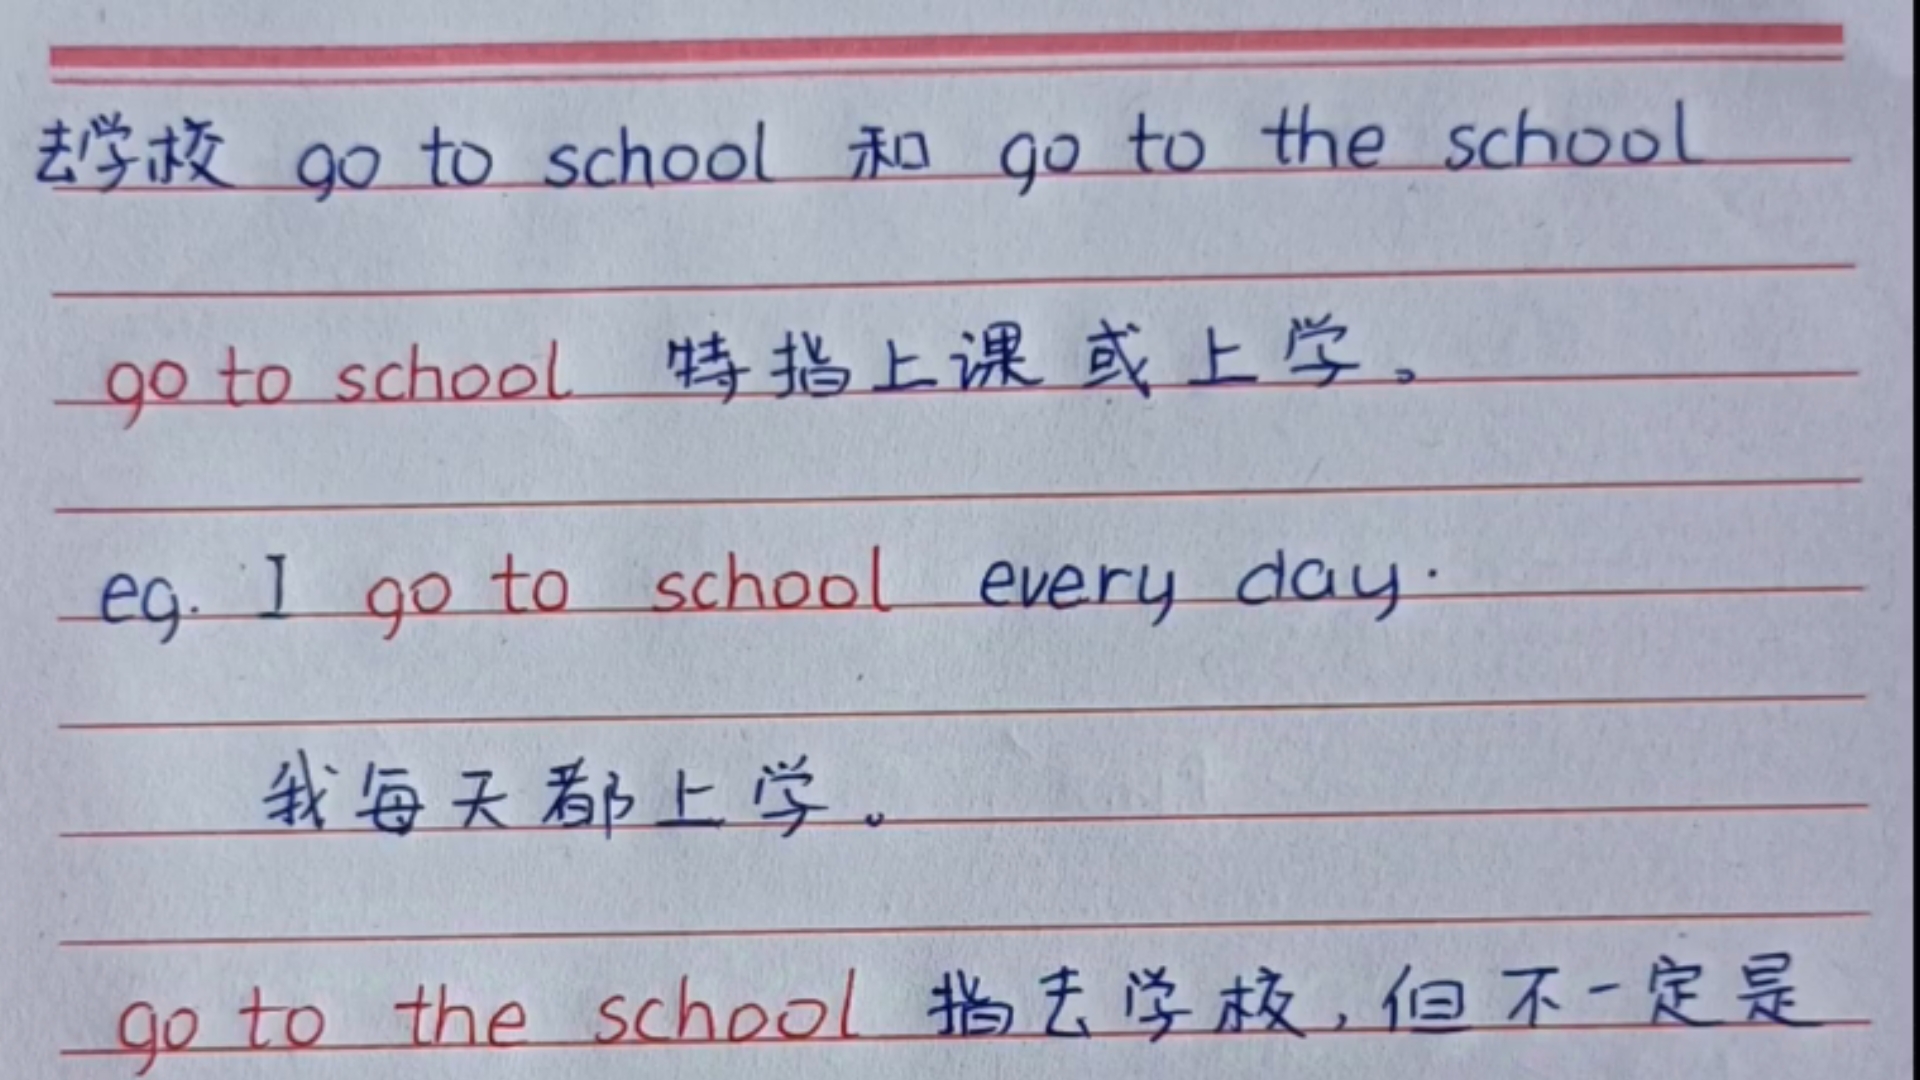 去学校 go to school 和 go to the school
go to school 特指上课或上学。
eg. I go to school every day.
我每天都上学。
go to the school 指去学校,但不一定是